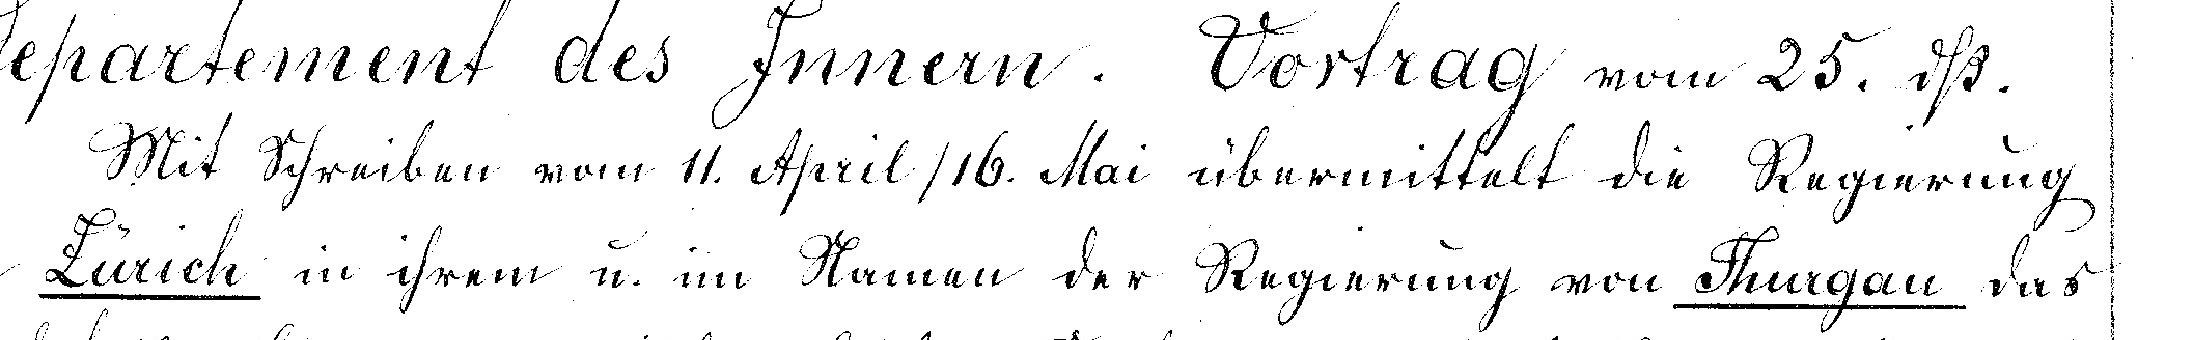 Departement des Innern. Vortrag vom 25. dß.
Mit Schreiben vom 11. April/16. Mai übermittelt die Regierung
Zürich in ihrem u. im Namen der Regierung von Thurgau das